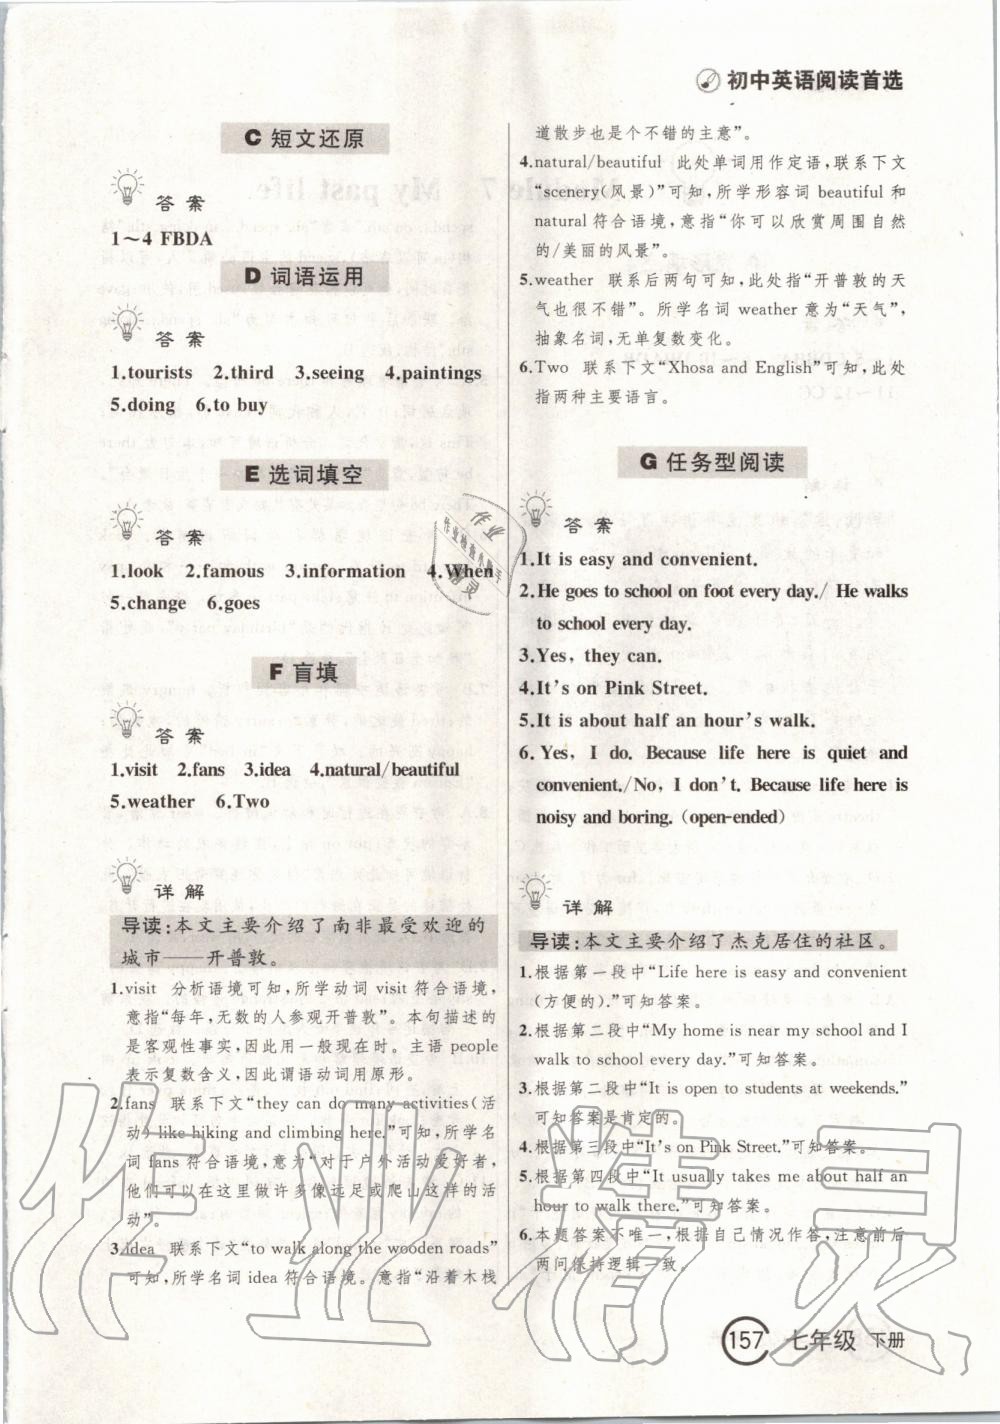 初中英语阅读首选
C 短文还原
答案
1～4 FBDA
D 词语运用
答案
1.tourists 2.third 3.seeing 4.paintings
5.doing 6.to buy
E 选词填空
答案
1.look 2.famous 3.information 4.When
5.change 6.goes
F 盲填
答案
1.visit 2.fans 3.idea 4.natural/beautiful
5.weather 6.Two
详解
导读:本文主要介绍了南非最受欢迎的
城市——开普敦。
1.visit 分析语境可知,所学动词 visit 符合语境,
意指“每年,无数的人参观开普敦”。本句描述的
是客观性事实,因此用一般现在时。主语 people
表示复数含义,因此谓语动词用原形。
2.fans 联系下文“they can do many activities(活
动) like hiking and climbing here.”可知,所学名
词 fans 符合语境,意为“对于户外活动爱好者,
他们可以在这里做许多像远足或爬山这样的活
动”。
3.Idea 联系下文“to walk along the wooden roads”
可知,所学名词 idea 符合语境。意指“沿着木栈
道散步也是个不错的主意”。
4.natural/beautiful 此处单词用作定语,联系下文
“scenery(风景)”可知,所学形容词 beautiful 和
natural 符合语境,意指“你可以欣赏周围自然
的/美丽的风景”。
5.weather 联系后两句可知,此处指“开普敦的天
气也很不错”。所学名词 weather 意为“天气”,
抽象名词,无单复数变化。
6.Two 联系下文“Xhosa and English”可知,此处
指两种主要语言。
G 任务型阅读
答案
1.It is easy and convenient.
2.He goes to school on foot every day./ He walks
to school every day.
3.Yes, they can.
4.It's on Pink Street.
5.It is about half an hour's walk.
6. Yes, I do. Because life here is quiet and
convenient./No, I don't. Because life here is
noisy and boring. (open-ended)
详解
导读:本文主要介绍了杰克居住的社区。
1.根据第一段中“Life here is easy and convenient
(方便的).”可知答案。
2.根据第二段中“My home is near my school and I
walk to school every day.”可知答案。
3.根据第二段中“It is open to students at weekends.”
可知答案是肯定的。
4.根据第三段中“It's on Pink Street.”可知答案。
5.根据第四段中“It usually takes me about half an
hour to walk there.”可知答案。
6.本题答案不唯一,根据自己情况作答,注意前后
两问保持逻辑一致。
157 七年级 下册
作业精灵